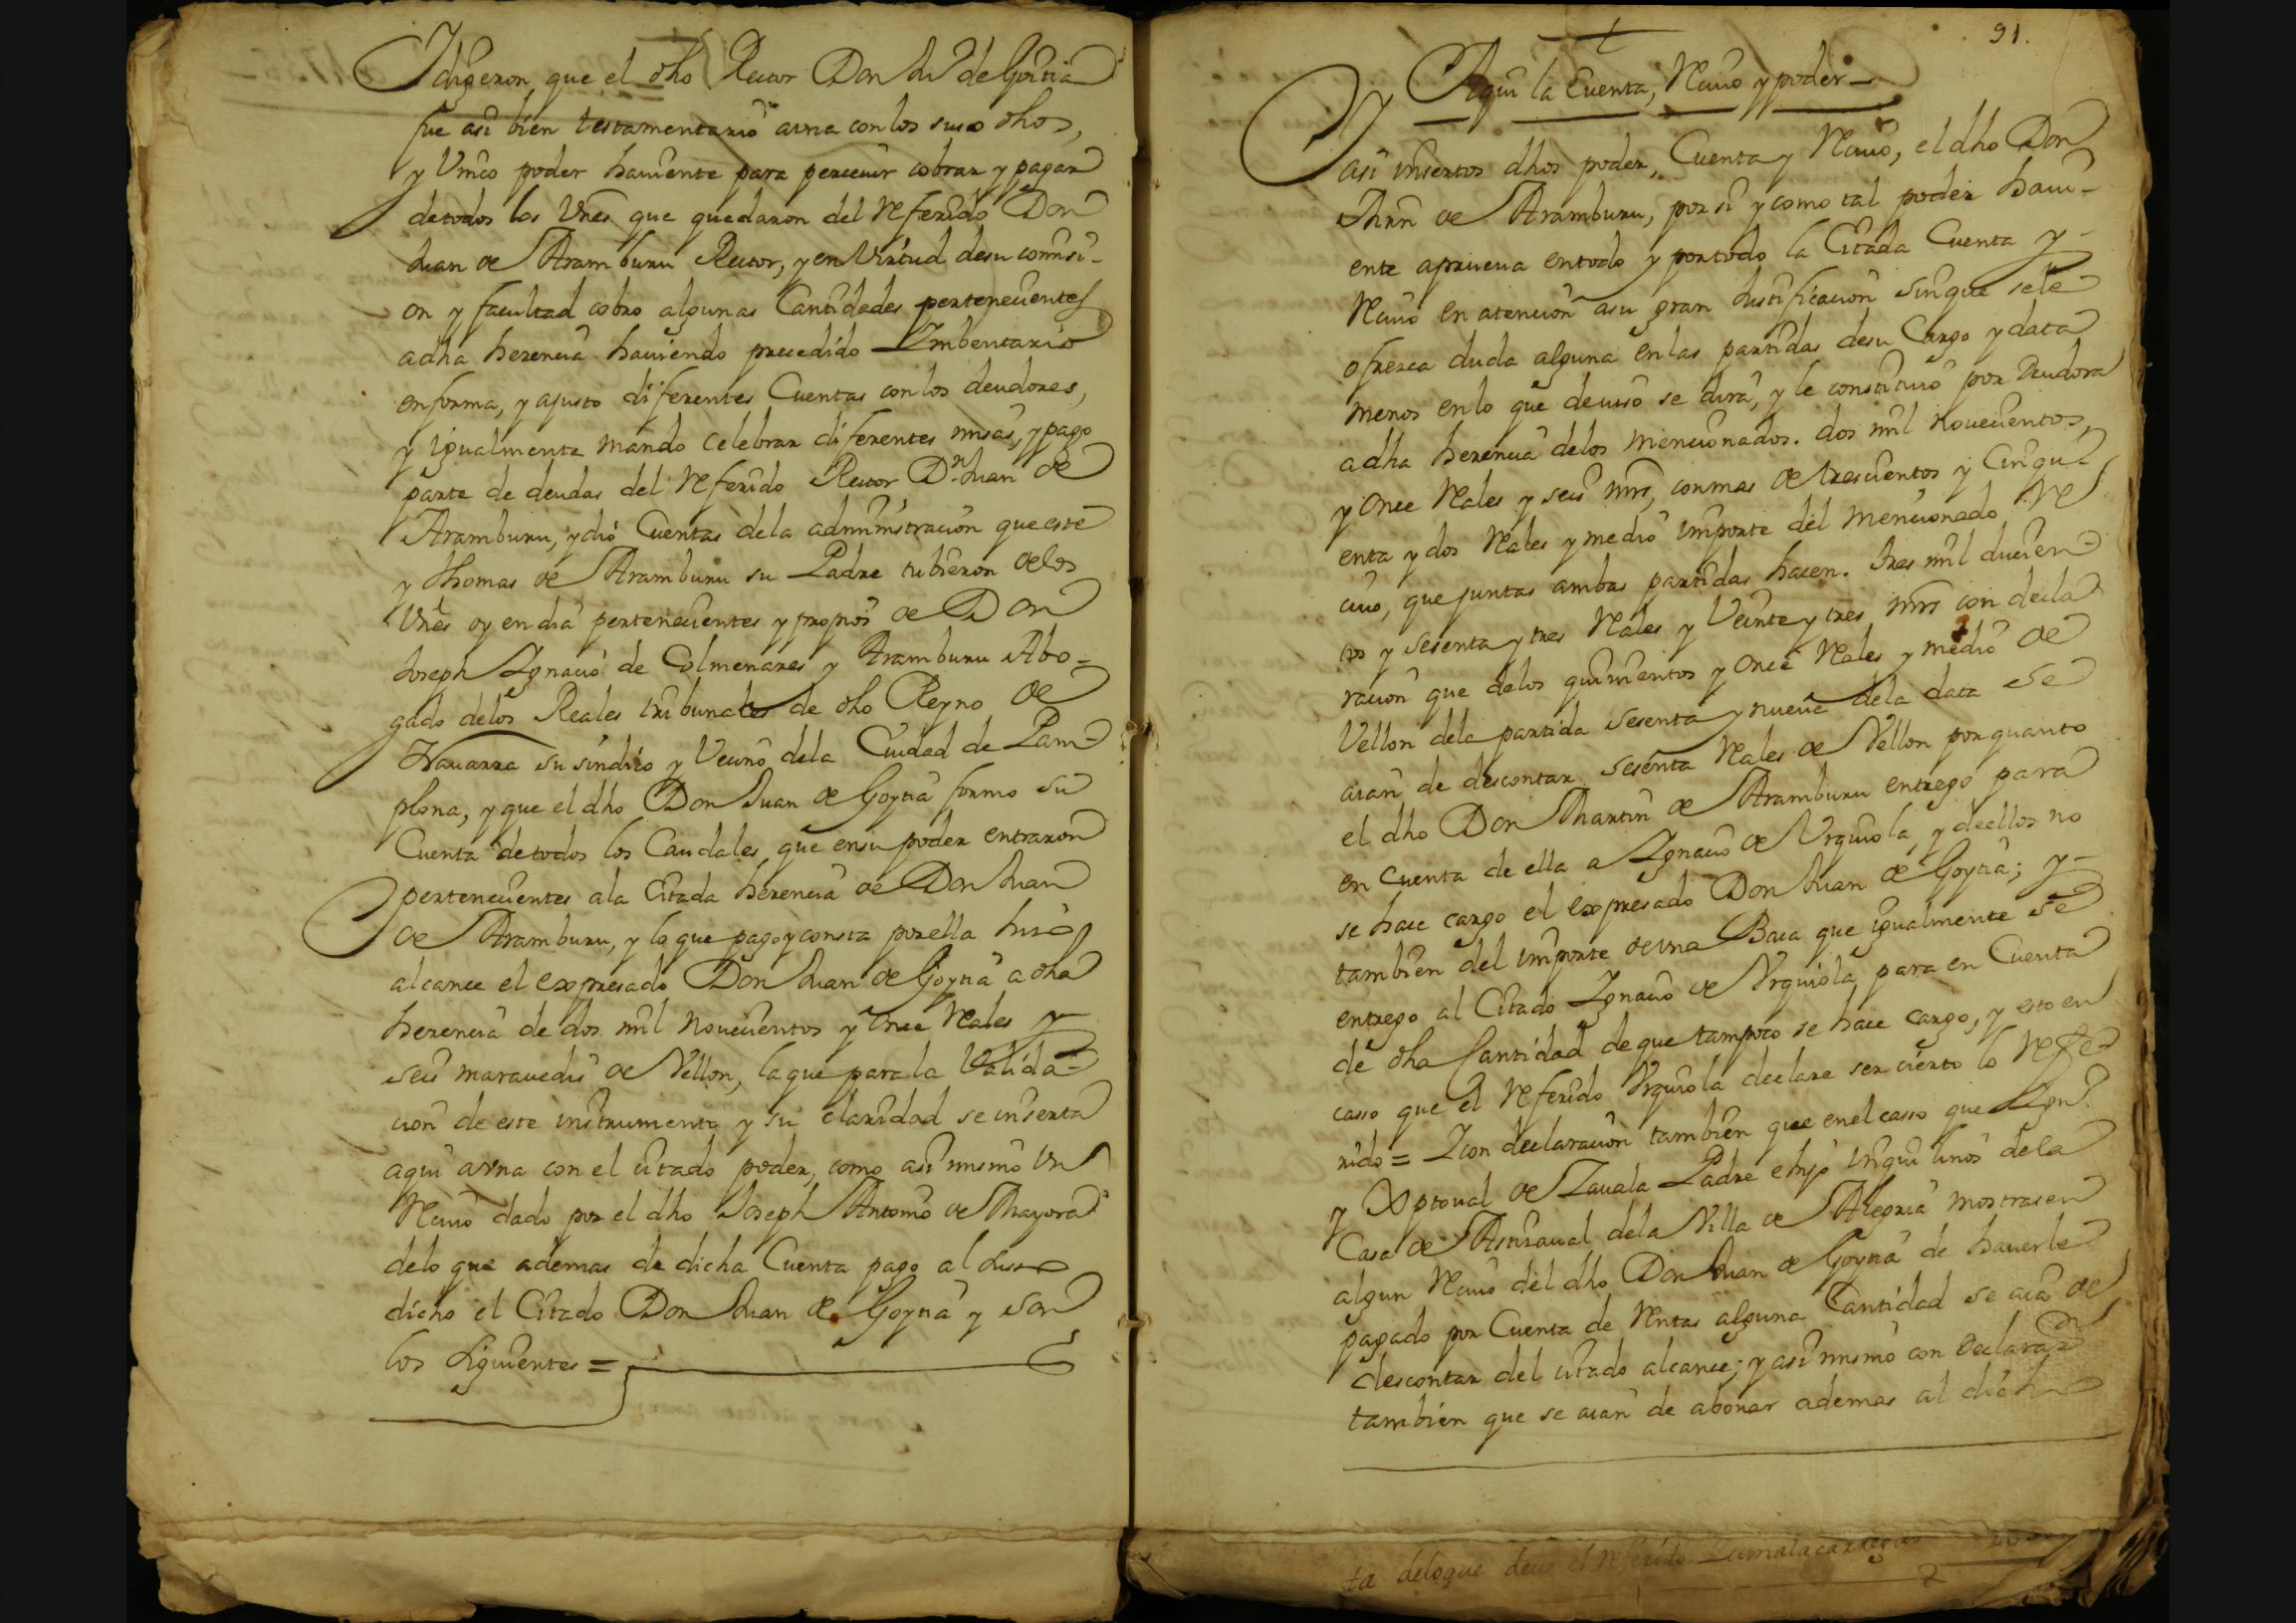 Y dixeron, que el dho Rector Don Ju.º de Goitia
fue asi bien testamentario auna con los suso dhos,
y Unico poder haviente para perceuir cobrar y pagar
de todos los Vnes que quedaron del referido Don
Juan de Aramburu Rector, y en Virtud de su comisi-
on y facultad cobro algunas Cantidades pertenecientes
a dha herencia haviendo precedido Imbentario
en forma, y ajusto diferentes Cuentas con los deudores,
y igualmente mando celebrar diferentes misas, y pago
parte de deudas del referido Rector D.n Juan de
Aramburu, y dio Cuentas de la administracion que este
y Thomas de Aramburu su Padre tubieron de los
Vnes oy en dia pertenecientes y propios de Don
Joseph Ignacio de Colmenares y Aramburu Abo-
gado de los Reales tribunales de dho Reyno de
Navarra su sindico y Vecino de la Ciudad de Pam-
plona, y que el dho Don Juan de Goytia formo su
Cuenta de todos los Caudales que en su poder entraron
pertenecientes a la Citada herencia de Don Juan
de Aramburu, y lo que pago y consta por ella hizo
alcance el expresado Don Juan de Goytia a dha
herencia de dos mil novecientos y once Reales y
seis maravedis de Vellon, la que para la Valida-
cion de este instrumento y su claridad se inserta
aqui auna con el citado poder, como asi mismo un
Recivo dado por el dho Joseph Antonio de Mayora
de lo que ademas de dicha Cuenta pago al suso
dicho el Citado Don Juan de Goytia y son
los siguientes =
91.
Aqui la Cuenta, Recivo y poder
Y asi insertos dhos poder, Cuenta y Recivo, el dho Don
Mrn de Aramburu, por si y como tal poder havi-
ente aprueva en todo y por todo la Citada Cuenta y
Recivo en atencion a su gran Justificacion sin que se le
ofrezca duda alguna en las partidas de su Cargo y data
menos en lo que deuiso se dira, y le constituio por Deudora
a dha herencia de los mencionados. dos mil novecientos,
y once Reales y seis mrs, con mas de trescientos y Cinqu-
enta y dos Reales y medio importe del mencionado Re
civo, que juntas ambas partidas hacen. tres mil ducien-
tos y sesenta y tres Reales y Veinte y tres mrs con decla
racion que de los quinientos y once Reales y medio de
Vellon de la partida sesenta y nueve de la data se
aian de descontar sesenta Reales de Vellon por quanto
el dho Don Martin de Aramburu entrego para
en cuenta de ella a Ignacio de Urquiola, y de ellos no
se hace cargo el expresado Don Juan de Goytia; y
tambien del importe de una Baca que igualmente se
entrego al Citado Ignacio de Urquiola para en Cuenta
de dha Cantidad de que tampoco se hace cargo, y esto en
casso que el referido Urquiola declare ser cierto lo refe-
rido = Y con declaracion tambien que en el casso que Ign.º
y Xptoual de Zavala Padre e hijo inquilinos de la
Casa de Astiraual de la Villa de Alegria mostrasen
algun Recivo del dho Don Juan de Goytia de haverle
pagado por Cuenta de Rentas alguna Cantidad se aia de
descontar del citado alcance; y asi mismo con declara.on
tambien que se aian de abonar ademas al dicho
ta de lo que deve el referido Zumalacarregui